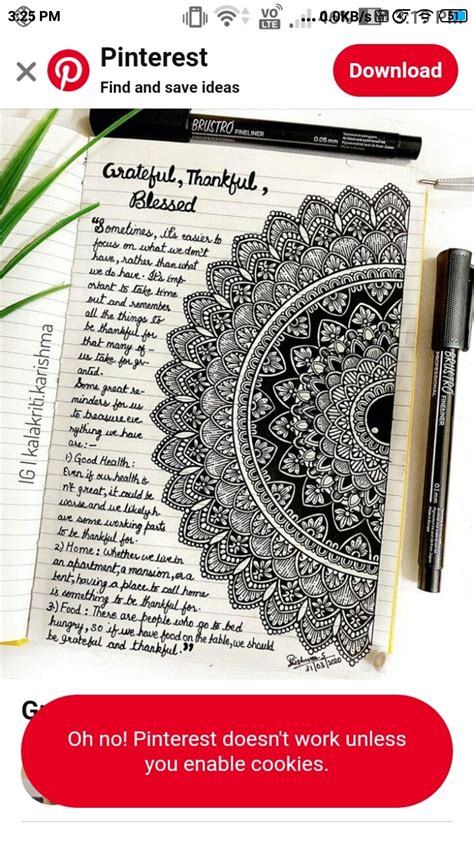 3:25 PM
VO
LTE
0.0KB/s
51
Pinterest
Find and save ideas
Download
BRUSTRO FINELINER
PROFESSIONAL
0.05 mm
Grateful, Thankful,
Blessed
"Sometimes, it's easier to
focus on what we don't
have, rather than what
we do have. It's imp
ortant to take time
out and remember
all the things to
be thankful for
that many of -
us take for gr-
anted.
Some great re-
minders for us
to treasure eve
rything we have
are:-
1) Good Health :
Even if our health is
n't great, it could be
worse and we likely h
ave some working parts
to be thankful for.
2) Home : Whether we live in
an apartment, a mansion, or a
tent, having a place to call home
is something to be thankful for.
3) Food : There are people who go to bed
hungry, so if we have food on the table, we should
be grateful and thankful."
31/03/2020
IG | kalakriti.karishma
BRUSTRO
FINELINER
PROFESSIONAL
0.1 mm
Oh no! Pinterest doesn't work unless
you enable cookies.